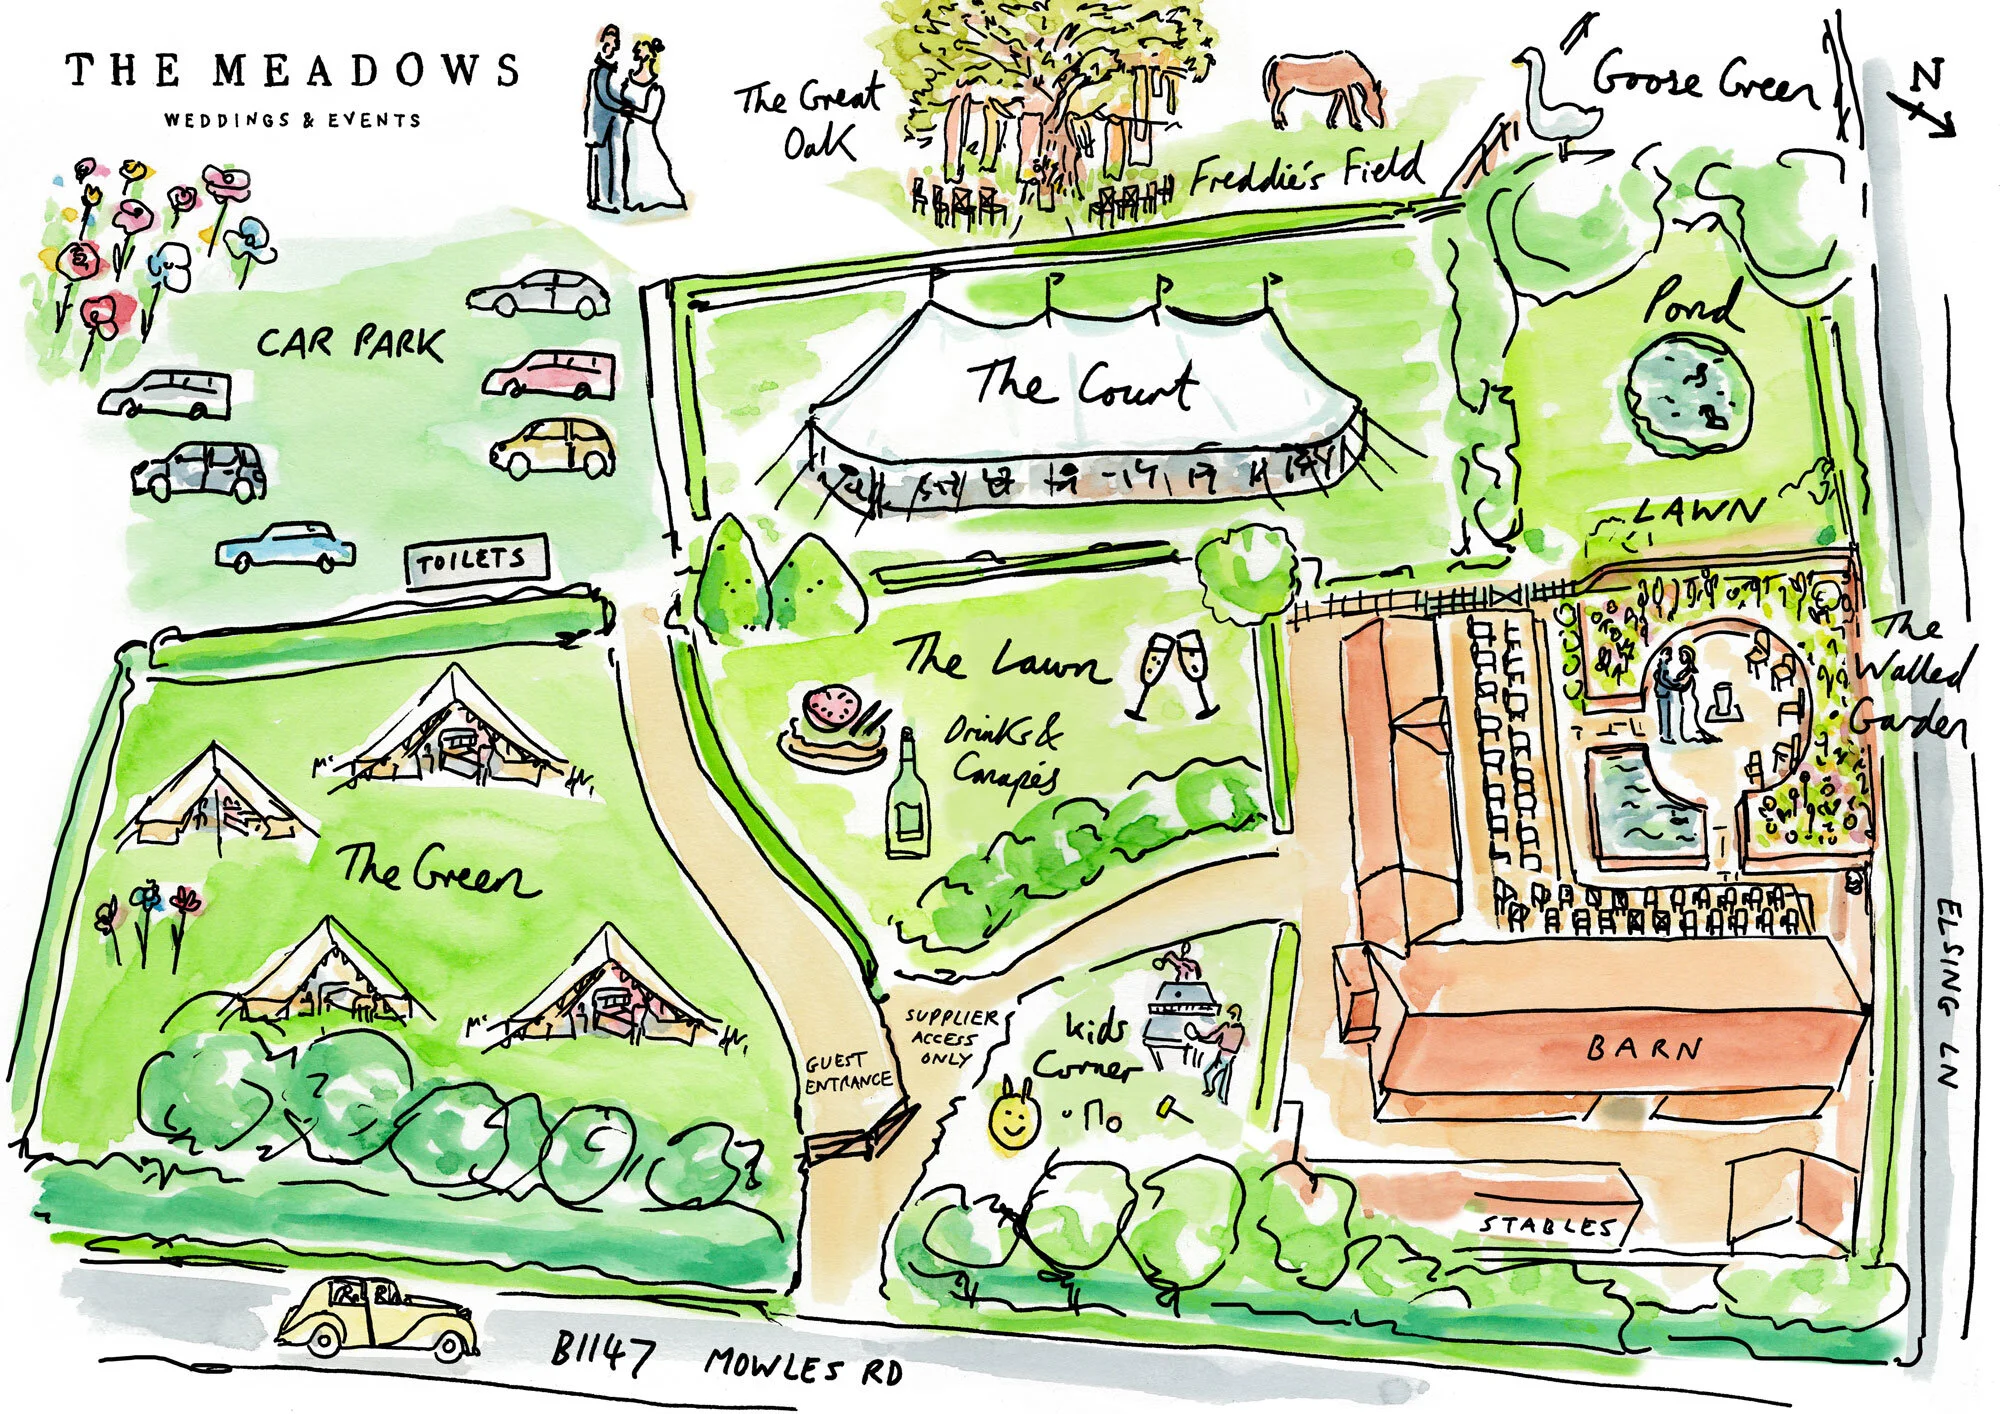 THE MEADOWS
WEDDINGS & EVENTS
The Great
Oak
Freddie's Field
Goose Green
N
CAR PARK
TOILETS
The Court
Pond
LAWN
The
Walled
Garden
The Lawn
Drinks &
Canapés
The Green
GUEST
ENTRANCE
SUPPLIER
ACCESS
ONLY
Kids
Corner
BARN
STABLES
ELSING LN
B1147 MOWLES RD